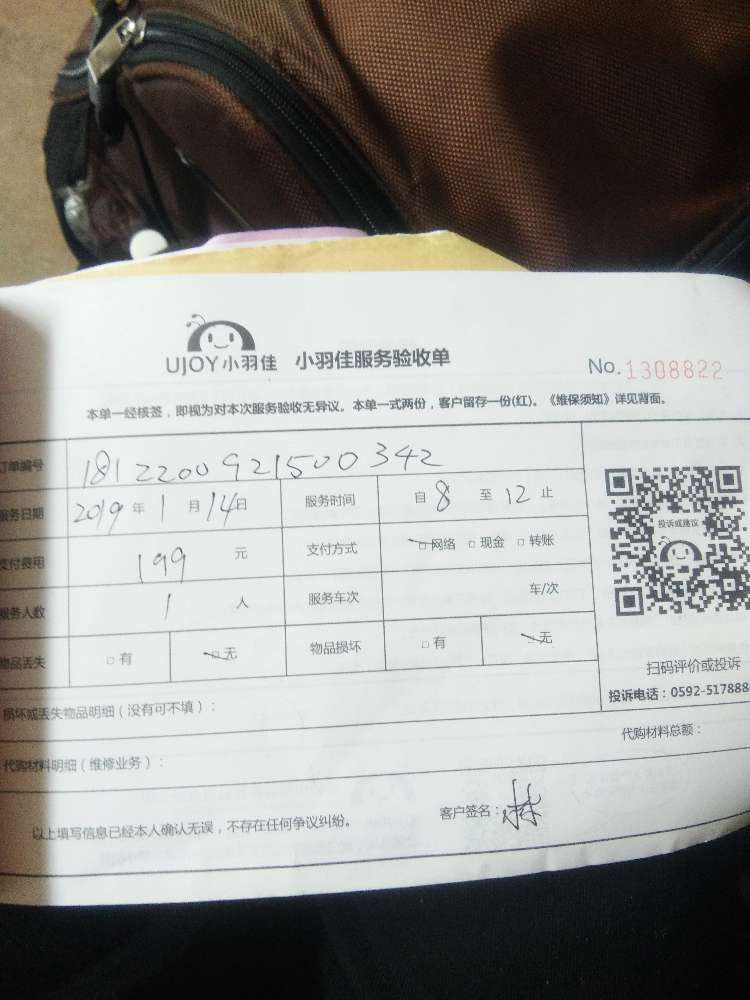 UJOY小羽佳 小羽佳服务验收单 No.1308822
本单一经核签，即视为对本次服务验收无异议。本单一式两份，客户留存一份(红)。《维保须知》详见背面。
订单编号 1812200921500342
服务日期 2019年1月14日 服务时间 自8至12止
支付费用 199元 支付方式 □网络 □现金 □转账
服务人数 1人 服务车次 车/次
物品丢失 □有 □无 物品损坏 □有 □无
投诉或建议
扫码评价或投诉
投诉电话：0592-517888
损坏或丢失物品明细（没有可不填）：
代购材料明细（维修业务）： 代购材料总额：
以上填写信息已经本人确认无误，不存在任何争议纠纷。 客户签名：林